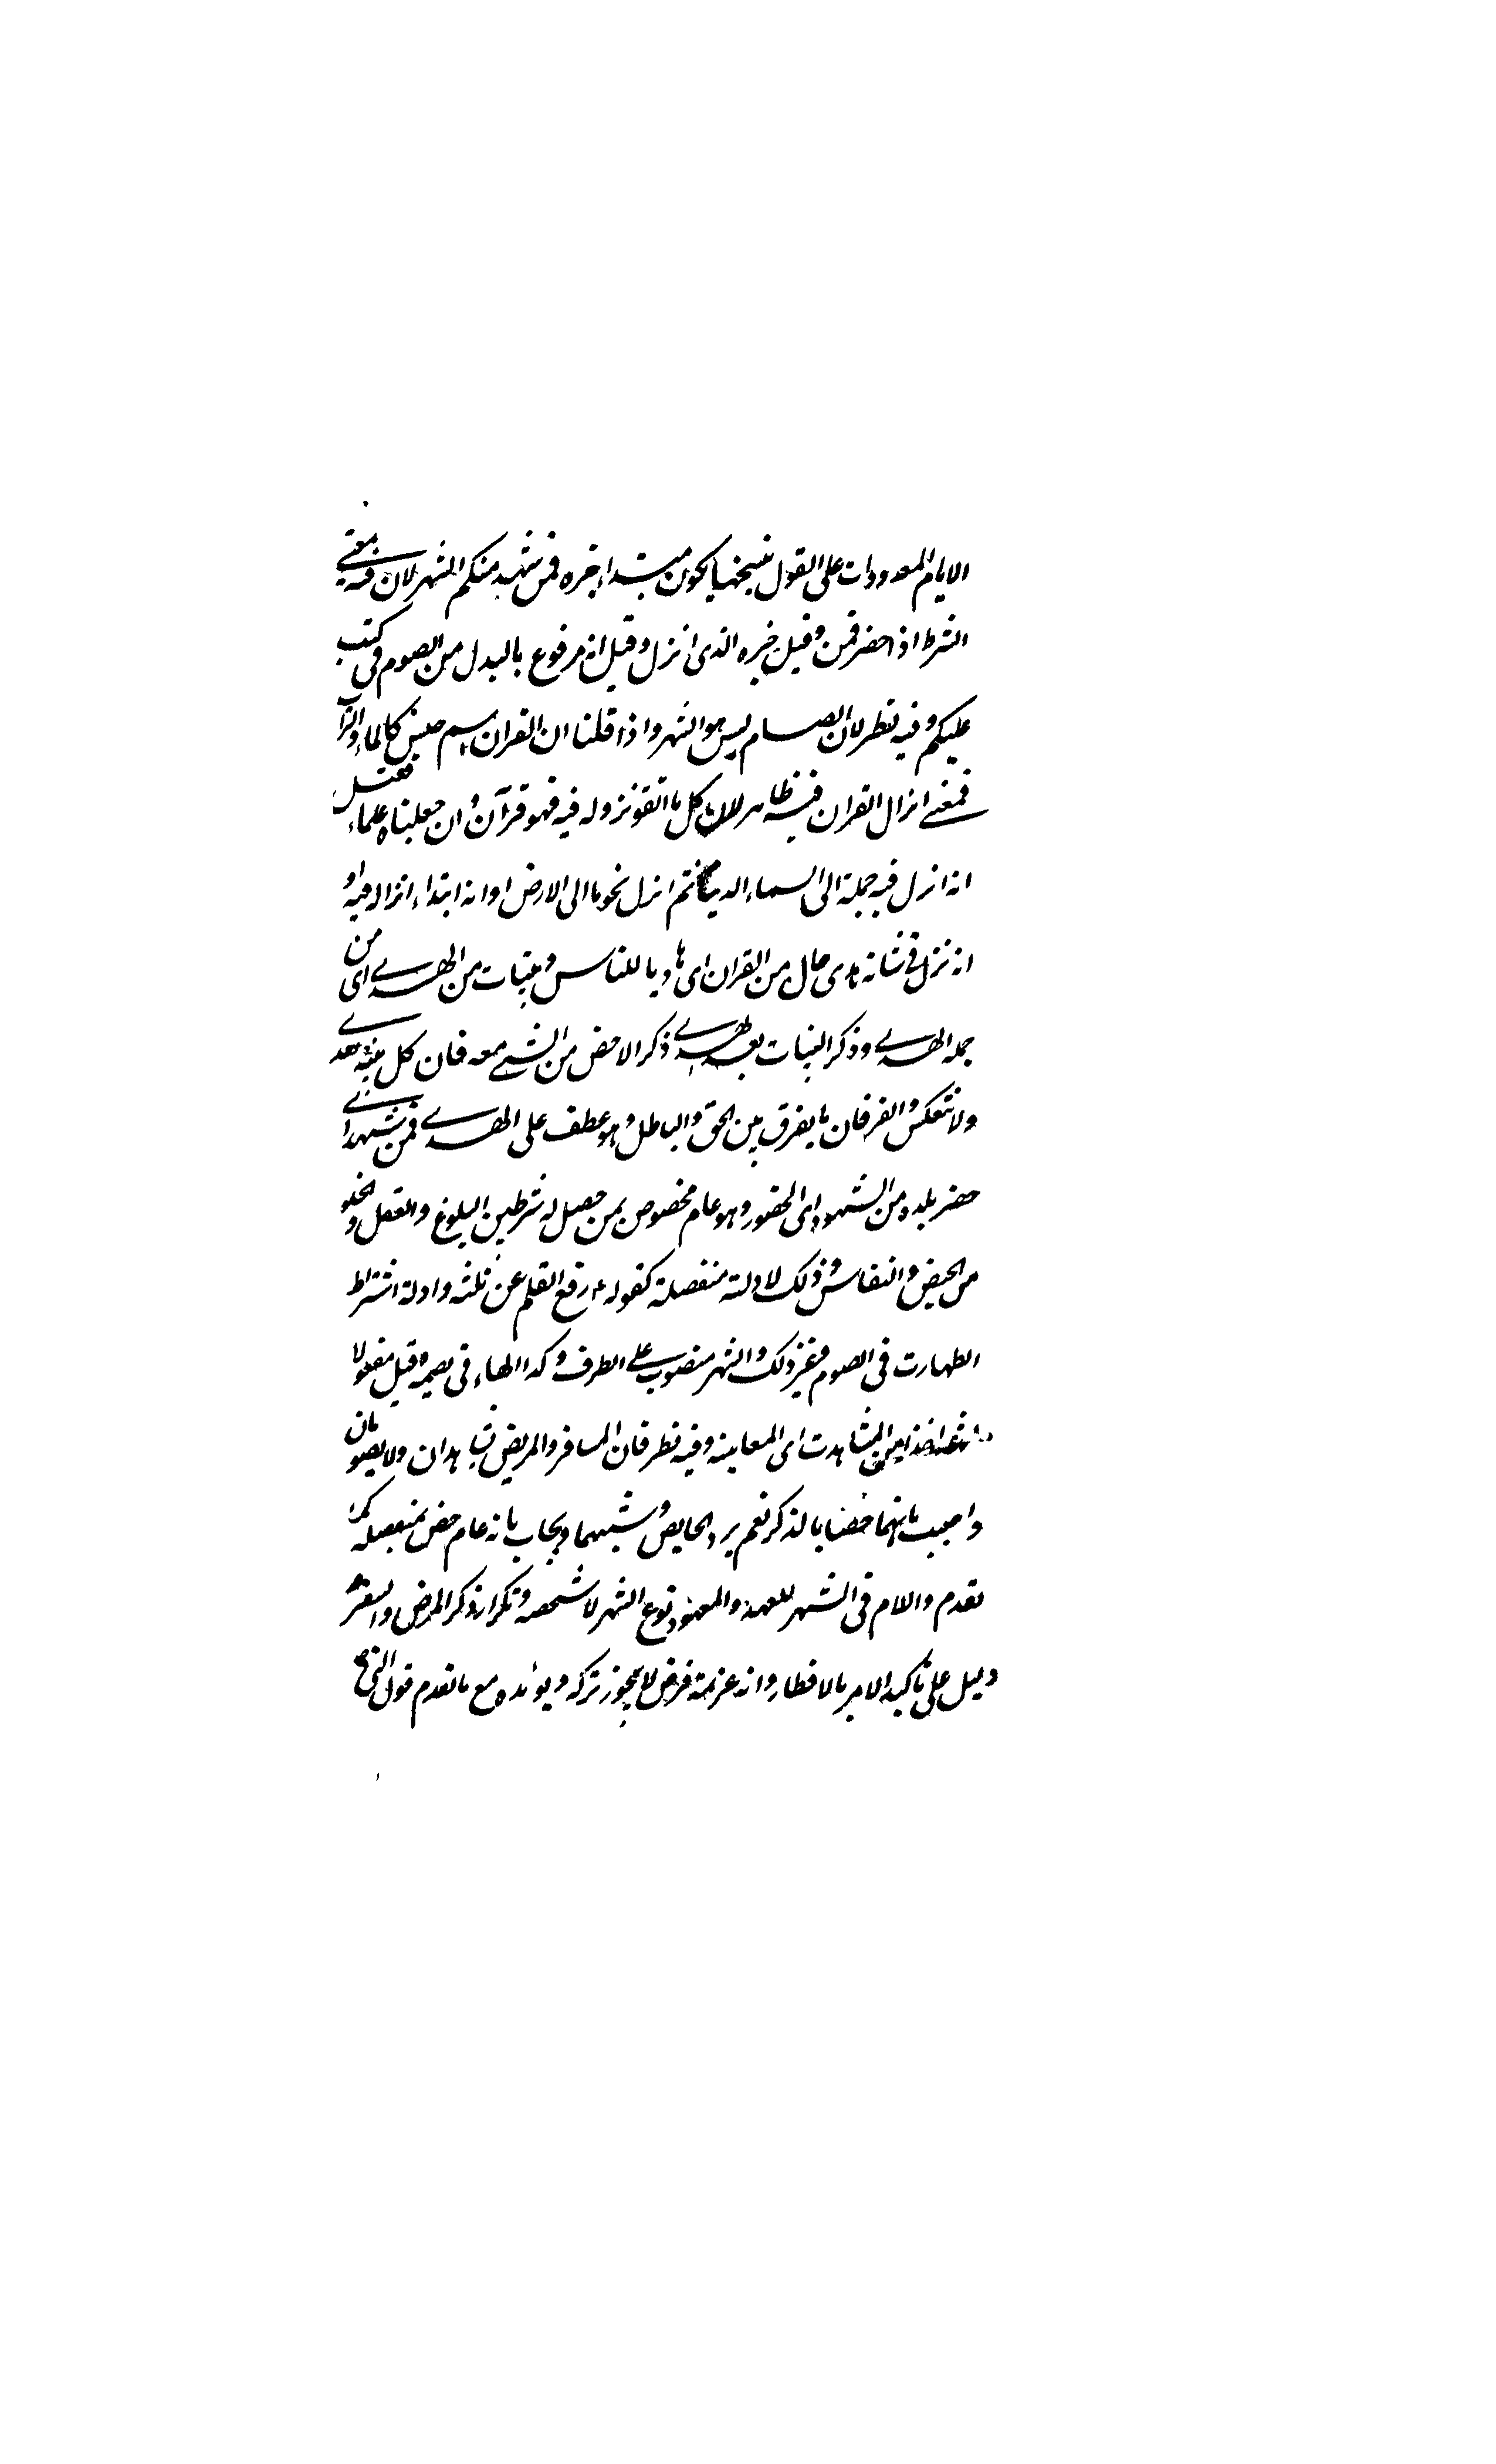 الايام المعدودات على القول بنسخها يكون مبتداء خبره فمن شهد منكم الشهر لان فيه معنى
الشرط اذا حضر فمن وقيل خبره الذى انزل وقيل انه مرفوع بالبدل من الصوم فى كتب
عليكم وفيه نظر لان الصيام ليس هو الشهر واذا قلنا ان القران اسم جنس كالماء والتراب
فمعنى انزال القران فيه ظاهر لان كل ما اتفق نزوله فيه فهو قرآن وان جعلناه علماء فقيل
انه انزل فيه جملة الى السماء الدنيا ثم انزل نجوما الى الارض او انه ابتداء انزاله فيه او
انه نزل فى شانه هدى حال من القران اى هاديا للناس وبينات من الهدى اى من
جمله الهدى وذكر البينات بعد الهدى ذكر الاخص من الشئ معه فان كل بينة هدى
ولا تنعكس والفرقان ما يفرق بين الحق والباطل وهو عطف على الهدى فمن شهد اى
حضر بلده من الشهود اى الحضور وهو عام مخصوص بمن حصل له شرطين البلوغ والعقل والخلو
من الحيض والنفاس وذلك لادلة منفصلة كقوله ع رفع القلم عن ثلثه وادلة اشتراط
الطهارت فى الصوم وغير ذلك والشهر منصوب على الظرف وكذا الهاء فى يصمه وقيل مفعولا
اخذا من المشاهدت اى المعاينه وفيه نظر فان المسافر والمريض يشاهدان ولا يصومان
واجيب بانهما خصا بالذكر نعم يرد الحايض وشبهها ويجاب بانه عام خص بمنفصله كما
تقدم واللام فى الشهر للعهد والمعهود نوع الشهر لا شخصه وتكرار ذكر المرض والسفر
دليل على تاكيد الامر بالافطار وانه عزيمة فرض لا يجوز تركه ويؤيده مع ما تقدم قول النبى ص